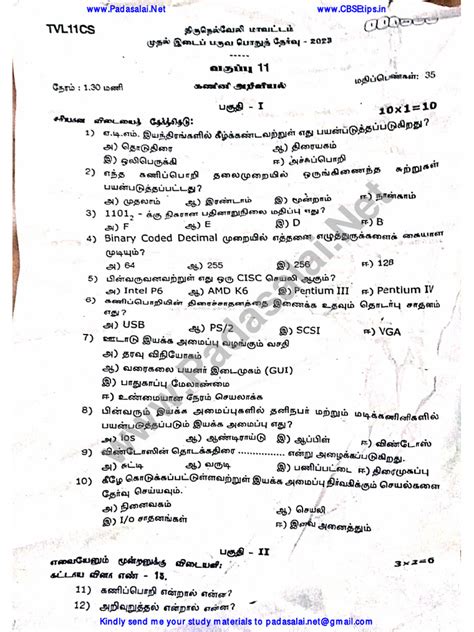 www.Padasalai.Net
www.CBSEtips.in
TVL11CS
திருநெல்வேலி மாவட்டம்
முதல் இடைப் பருவ பொதுத் தேர்வு - 2023
வகுப்பு 11
நேரம் : 1.30 மணி
கணினி அறிவியல்
மதிப்பெண்கள்: 35
பகுதி - I
சரியான விடையைத் தேர்ந்தெடு:
10x1=10
1) ஏ.டி.எம். இயந்திரங்களில் கீழ்க்கண்டவற்றுள் எது பயன்படுத்தப்படுகிறது?
அ) தொடுதிரை ஆ) திரையகம்
இ) ஒலிபெருக்கி ஈ) அச்சுப்பொறி
2) எந்த கணிப்பொறி தலைமுறையில் ஒருங்கிணைந்த சுற்றுகள்
பயன்படுத்தப்பட்டது?
அ) முதலாம் ஆ) இரண்டாம் இ) மூன்றாம் ஈ) நான்காம்
3) 1101₂ - க்கு நிகரான பதினாறுநிலை மதிப்பு எது?
அ) F ஆ) E இ) D ஈ) B
4) Binary Coded Decimal முறையில் எத்தனை எழுத்துருக்களைக் கையாள
முடியும்?
அ) 64 ஆ) 255 இ) 256 ஈ) 128
5) பின்வருவனவற்றுள் எது ஒரு CISC செயலி ஆகும்?
அ) Intel P6 ஆ) AMD K6 இ) Pentium III ஈ) Pentium IV
6) கணிப்பொறியின் திரைச்சாதனத்தை இணைக்க உதவும் தொடர்பு சாதனம்
எது?
அ) USB ஆ) PS/2 இ) SCSI ஈ) VGA
7) ஊடாடு இயக்க அமைப்பு வழங்கும் வசதி
அ) தரவு விநியோகம்
ஆ) வரைகலை பயனர் இடைமுகம் (GUI)
இ) பாதுகாப்பு மேலாண்மை
ஈ) உண்மையான நேரம் செயலாக்க
8) பின்வரும் இயக்க அமைப்புகளில் தனிநபர் மற்றும் மடிக்கணினிகளில்
பயன்படுத்தப்படும் இயக்க அமைப்பு எது?
அ) IOS ஆ) ஆண்டிராய்டு இ) ஆப்பிள் ஈ) விண்டோஸ்
9) விண்டோஸின் தொடக்கதிரை ................ என்று அழைக்கப்படுகிறது.
அ) சுட்டி ஆ) வருடி இ) பணிப்பட்டை ஈ) திரைமுகப்பு
10) கீழே கொடுக்கப்பட்டுள்ளவற்றுள் இயக்க அமைப்பு நிர்வகிக்கும் செயல்களை
தேர்வு செய்யவும்.
அ) நினைவகம் ஆ) செயலி
இ) I/o சாதனங்கள் ஈ) இவை அனைத்தும்
பகுதி - II
எவையேனும் மூன்றனுக்கு விடையளி:
3x2=6
கட்டாய வினா எண் - 15.
11) கணிப்பொறி என்றால் என்ன?
12) அறிவுறுத்தல் என்றால் என்ன?
www.Padasalai.Net
Kindly send me your study materials to padasalai.net@gmail.com